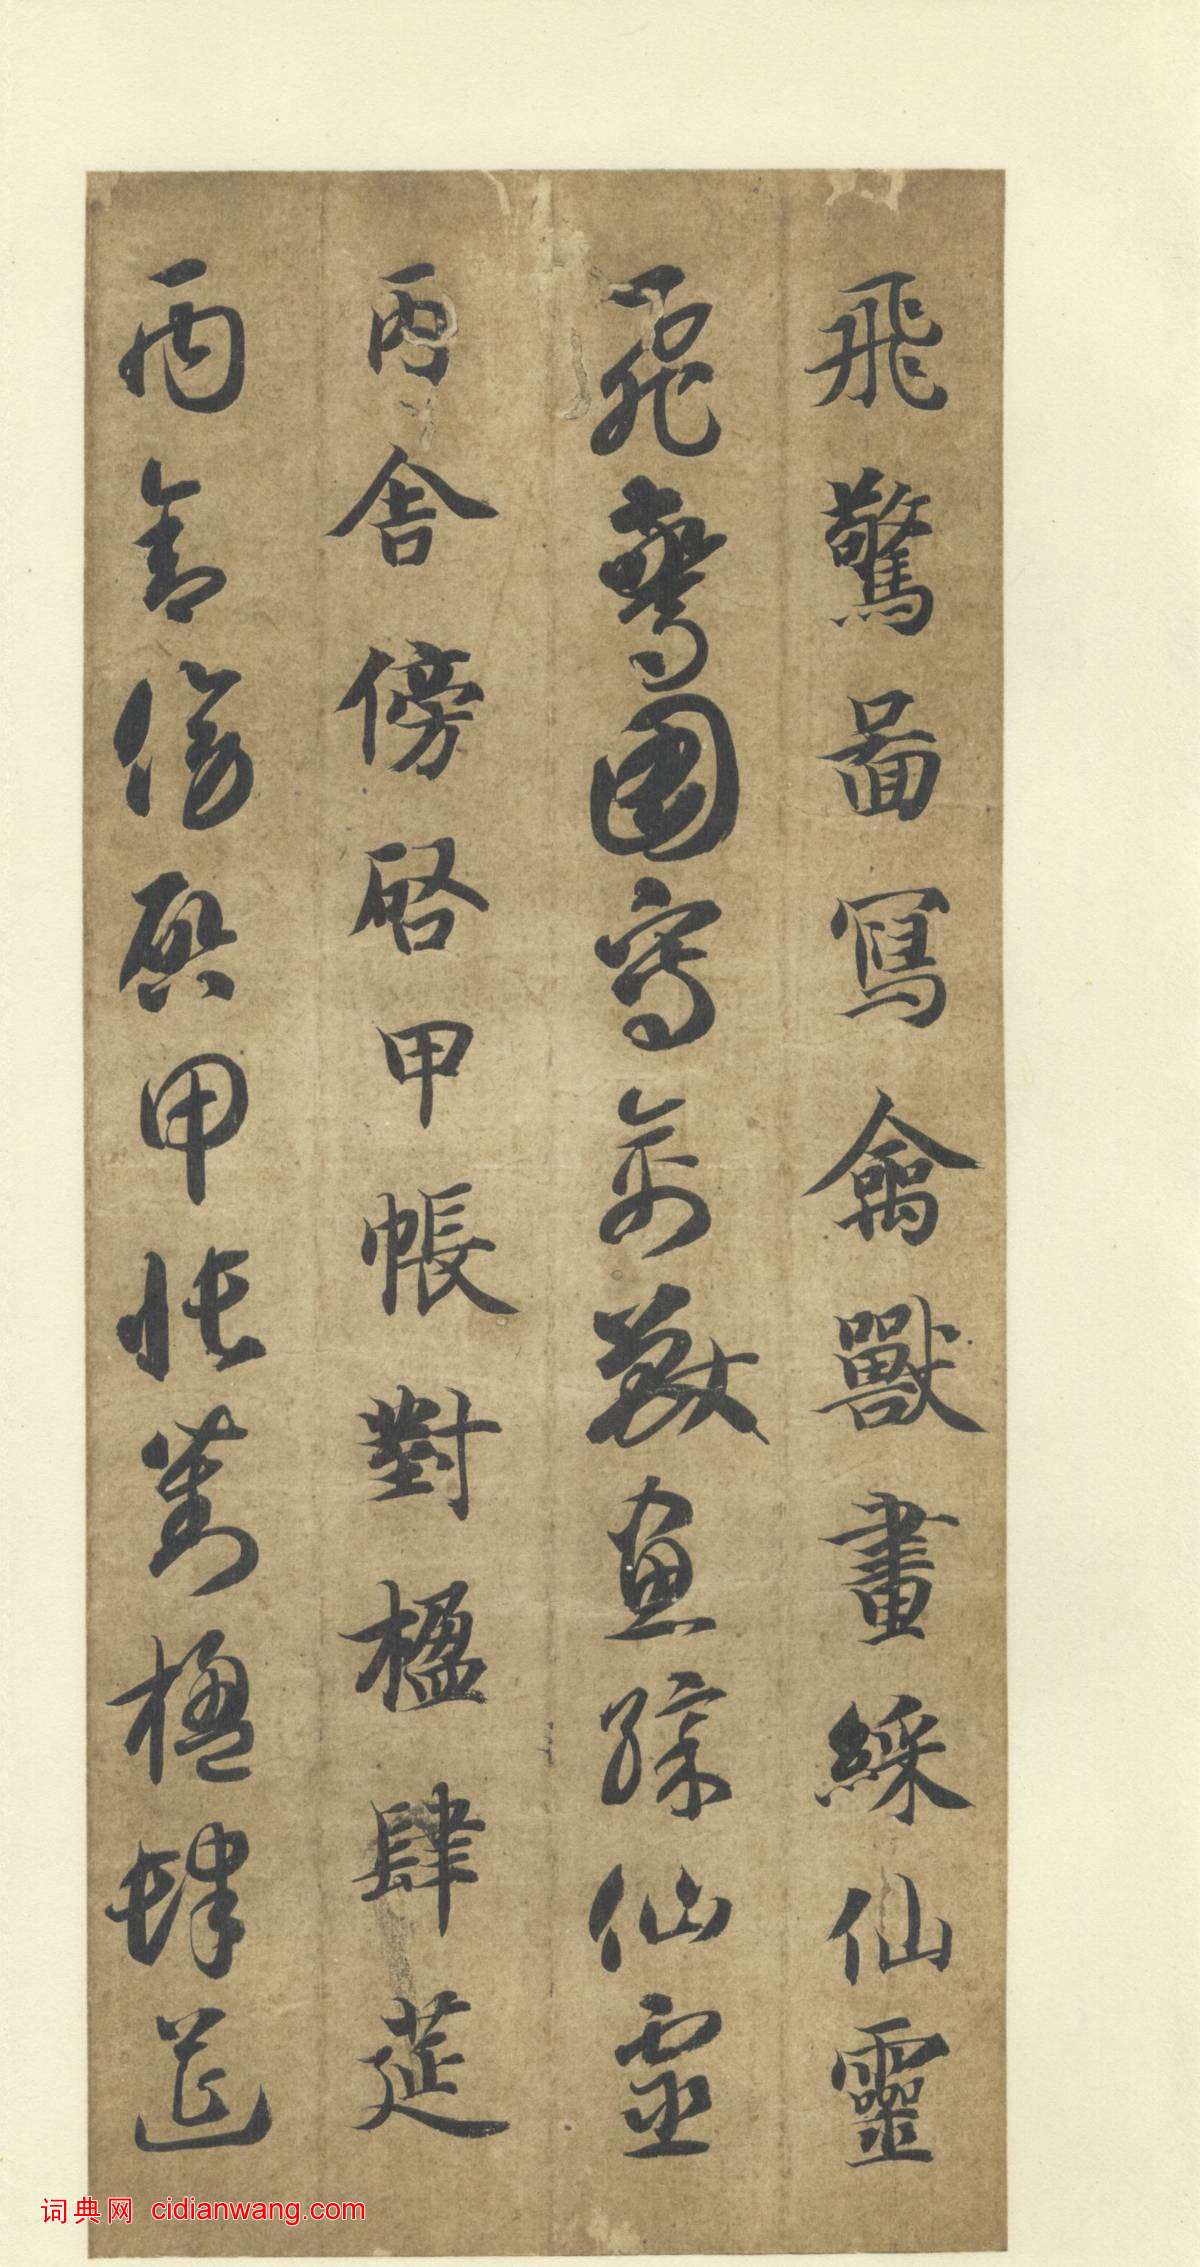 飛驚啚寫禽獸畫綵仙靈
飛驚圖寫禽獸畫綵仙靈
丙舍傍啓甲帳對楹肆莚
丙舍傍啓甲帳對楹肆莚
词典网 cidianwang.com